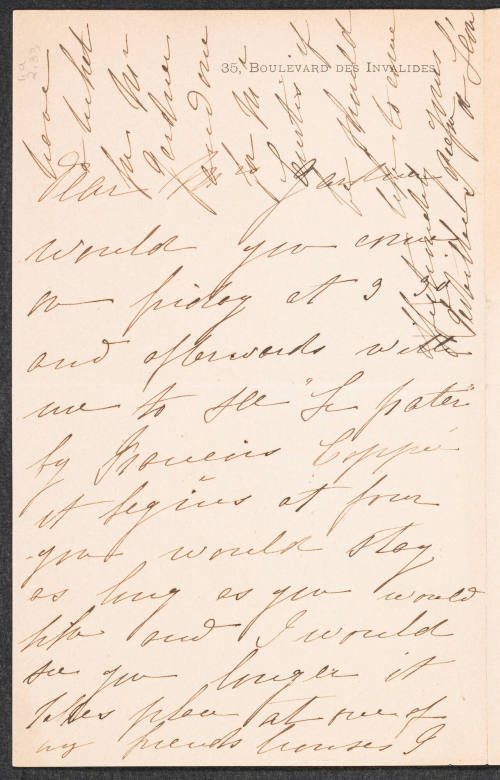 35, BOULEVARD DES INVALIDES
Dear Mrs Gardner
would you come
on friday at 3 30
and afterwards with
me to see "Le pater"
by François Coppé
it begins at four
you would stay
as long as you would
like and I would
see you longer it
takes place at one of
my friends houses I
have
a ticket
for Mr
Gardner
and one
for Mr
Curtis if
he should
like to come
Affectionately yours